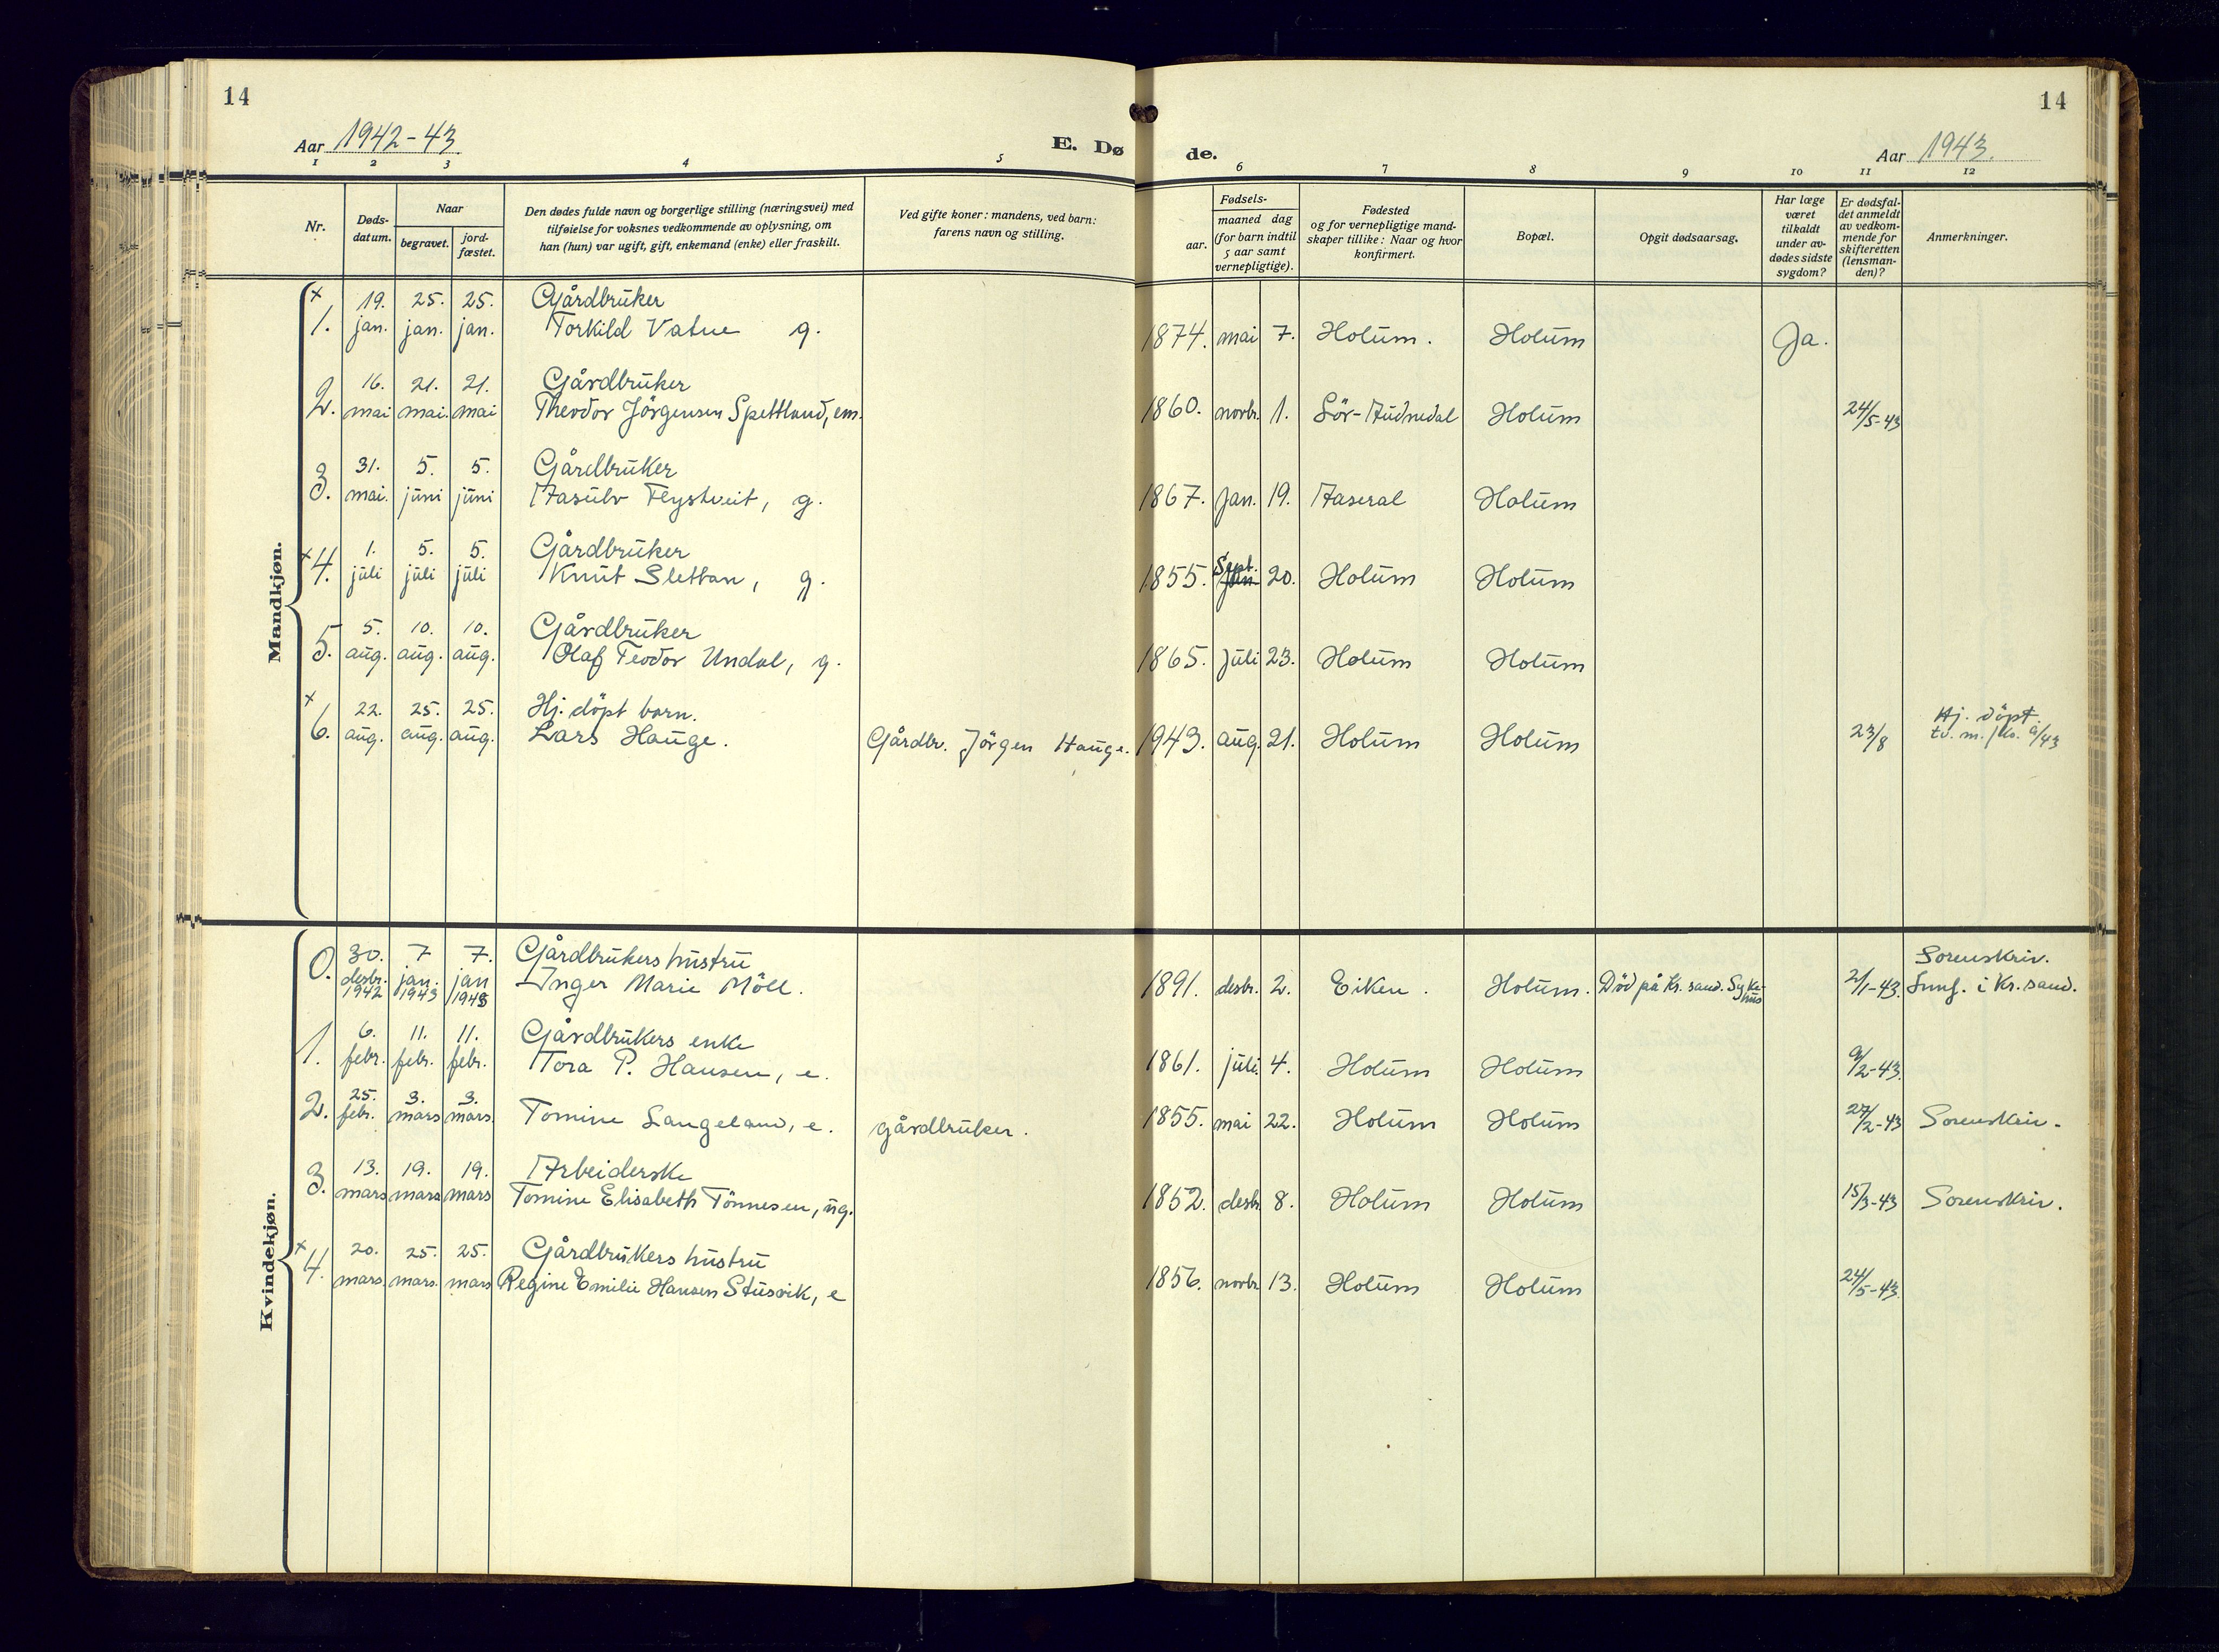 14
14
Aar 1942-43
E. Dø
de.
Aar 1943.
1 2 3 4 5 6 7 8 9 10 11 12
Nr.
Døds-
datum.
Naar
begravet.
jord-
fæstet.
Den dødes fulde navn og borgerlige stilling (næringsvei) med
tilføielse for voksnes vedkommende av oplysning, om
han (hun) var ugift, gift, enkemand (enke) eller fraskilt.
Ved gifte koner: mandens, ved barn:
farens navn og stilling.
Fødsels-
aar.
maaned dag
(for barn indtil
5 aar samt
vernepligtige).
Fødested
og for vernepligtige mand-
skaper tillike: Naar og hvor
konfirmert.
Bopæl.
Opgit dødsaarsag.
Har læge
været
tilkaldt
under av-
dødes sidste
sygdom?
Er dødsfal-
det anmeldt
av vedkom-
mende for
skifteretten
(lensman-
den)?
Anmerkninger.
Mandkjøn.
x 19. 25. 25. Gårdbruker
1. jan. jan. jan. Torkild Vatne g. 1874. mai 7. Holum. Holum Ja.
16. 21. 21. Gårdbruker
2. mai mai. mai Theodor Jörgensen Spettland, em. 1860. novbr. 1. Sör-Audnedal Holum 24/5-43
31. 5. 5. Gårdbruker
3. mai. juni juni Aasulv Flystveit, g. 1867. jan. 19. Aaseral Holum
x 1. 5. 5. Gårdbruker
4. juli juli juli Knut Slettan, g. 1855. Sept. 20. Holum Holum
5. 10. 10. Gårdbruker
5. aug. aug. aug. Olaf Teodor Undal, g. 1865. juli 23. Holum Holum
x 22. 25. 25. Hj. döpt barn.
6. aug. aug. aug. Lars Hauge. Gårdbr. Jörgen Hauge. 1943. aug. 21. Holum Holum 23/8 Hj. döpt.
Kvindekjøn.
30. 7 7. Gårdbrukers hustru Sorenskriv.
0. desbr. jan. jan Inger Marie Möll. 1891. desbr. 2. Eiken. Holum. Död på Kr. sand. Syke- 2/1-43. i Kr. sand.
1942 1943 1943 hus
6. 11. 11. Gårdbrukers enke
1. febr. febr. febr. Tora P. Hansen, e. 1861. juli. 4. Holum Holum 9/2-43.
25. 3. 3.
2. febr. mars mars. Tomine Langeland, e. gårdbruker. 1855. mai 22. Holum Holum 27/2-43 Sorenskriv.
13. 19. 19. Arbeiderske
3. mars mars mars Tomine Elisabeth Tönnesen, ug. 1862. desbr. 8. Holum Holum 15/3-43 Sorenskriv.
x 20. 25. 25. Gårdbrukers hustru
4. mars. mars. mars Regine Emilie Hansen Stusvik, e 1856. novbr. 13. Holum Holum 24/5-43.